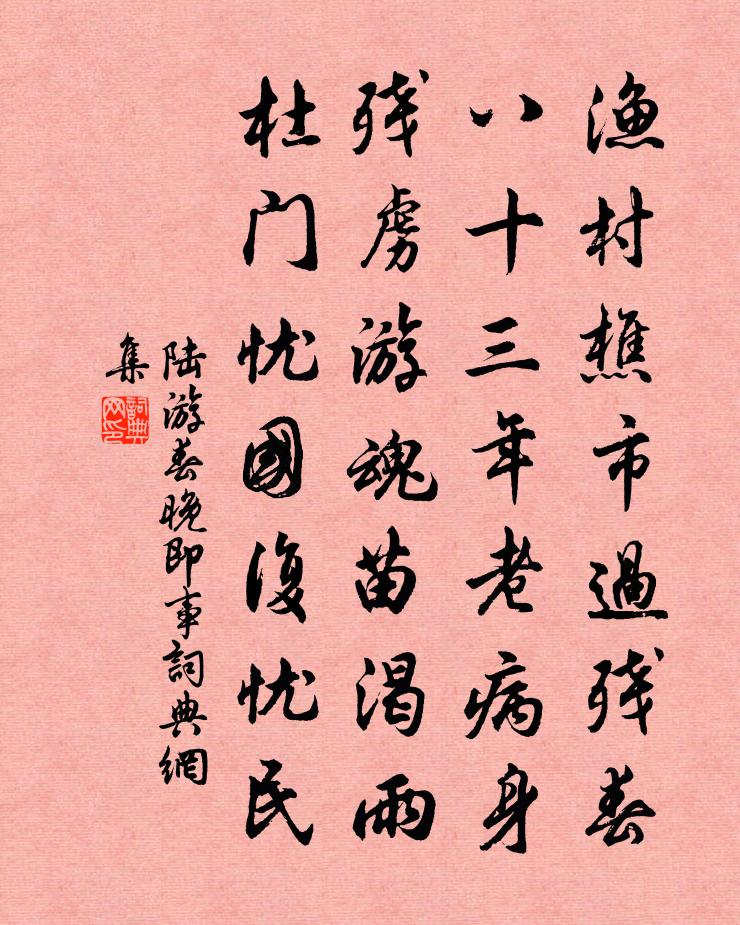 渔村樵市過残春
八十三年老病身
残虏游魂苗渴雨
杜门忧國復忧民
陆游春晚即事詞典網
集
詞典
网印